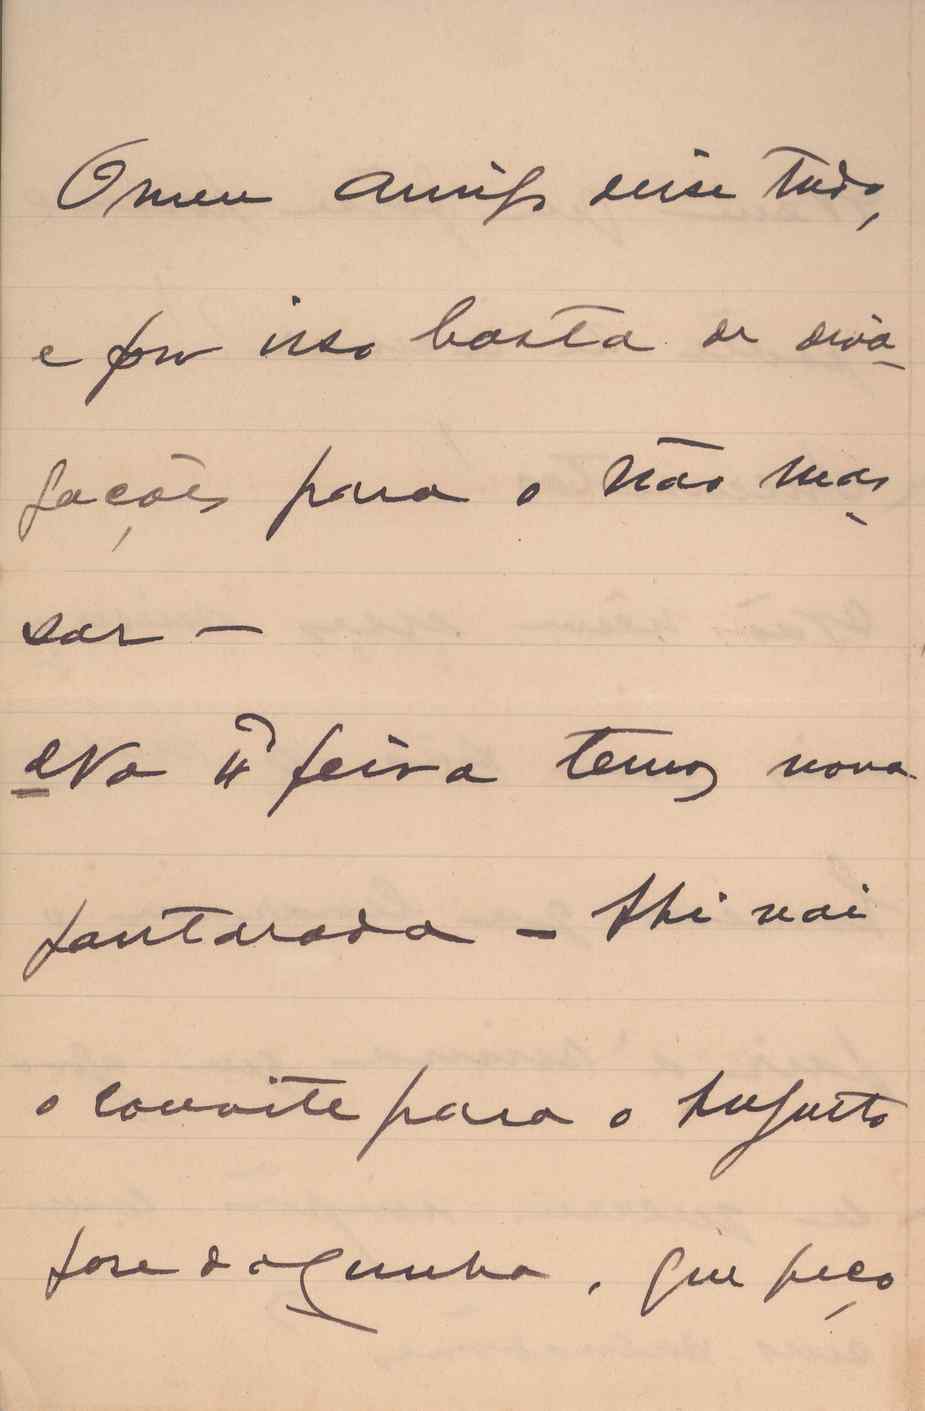 O meu amigo disse tudo,
e por isso basta de diva-
gações para o não mas-
sar –
Na 4ª feira temos nova
jantarada – Ahi vai
o convite para o Augusto
José da Cunha, que peço